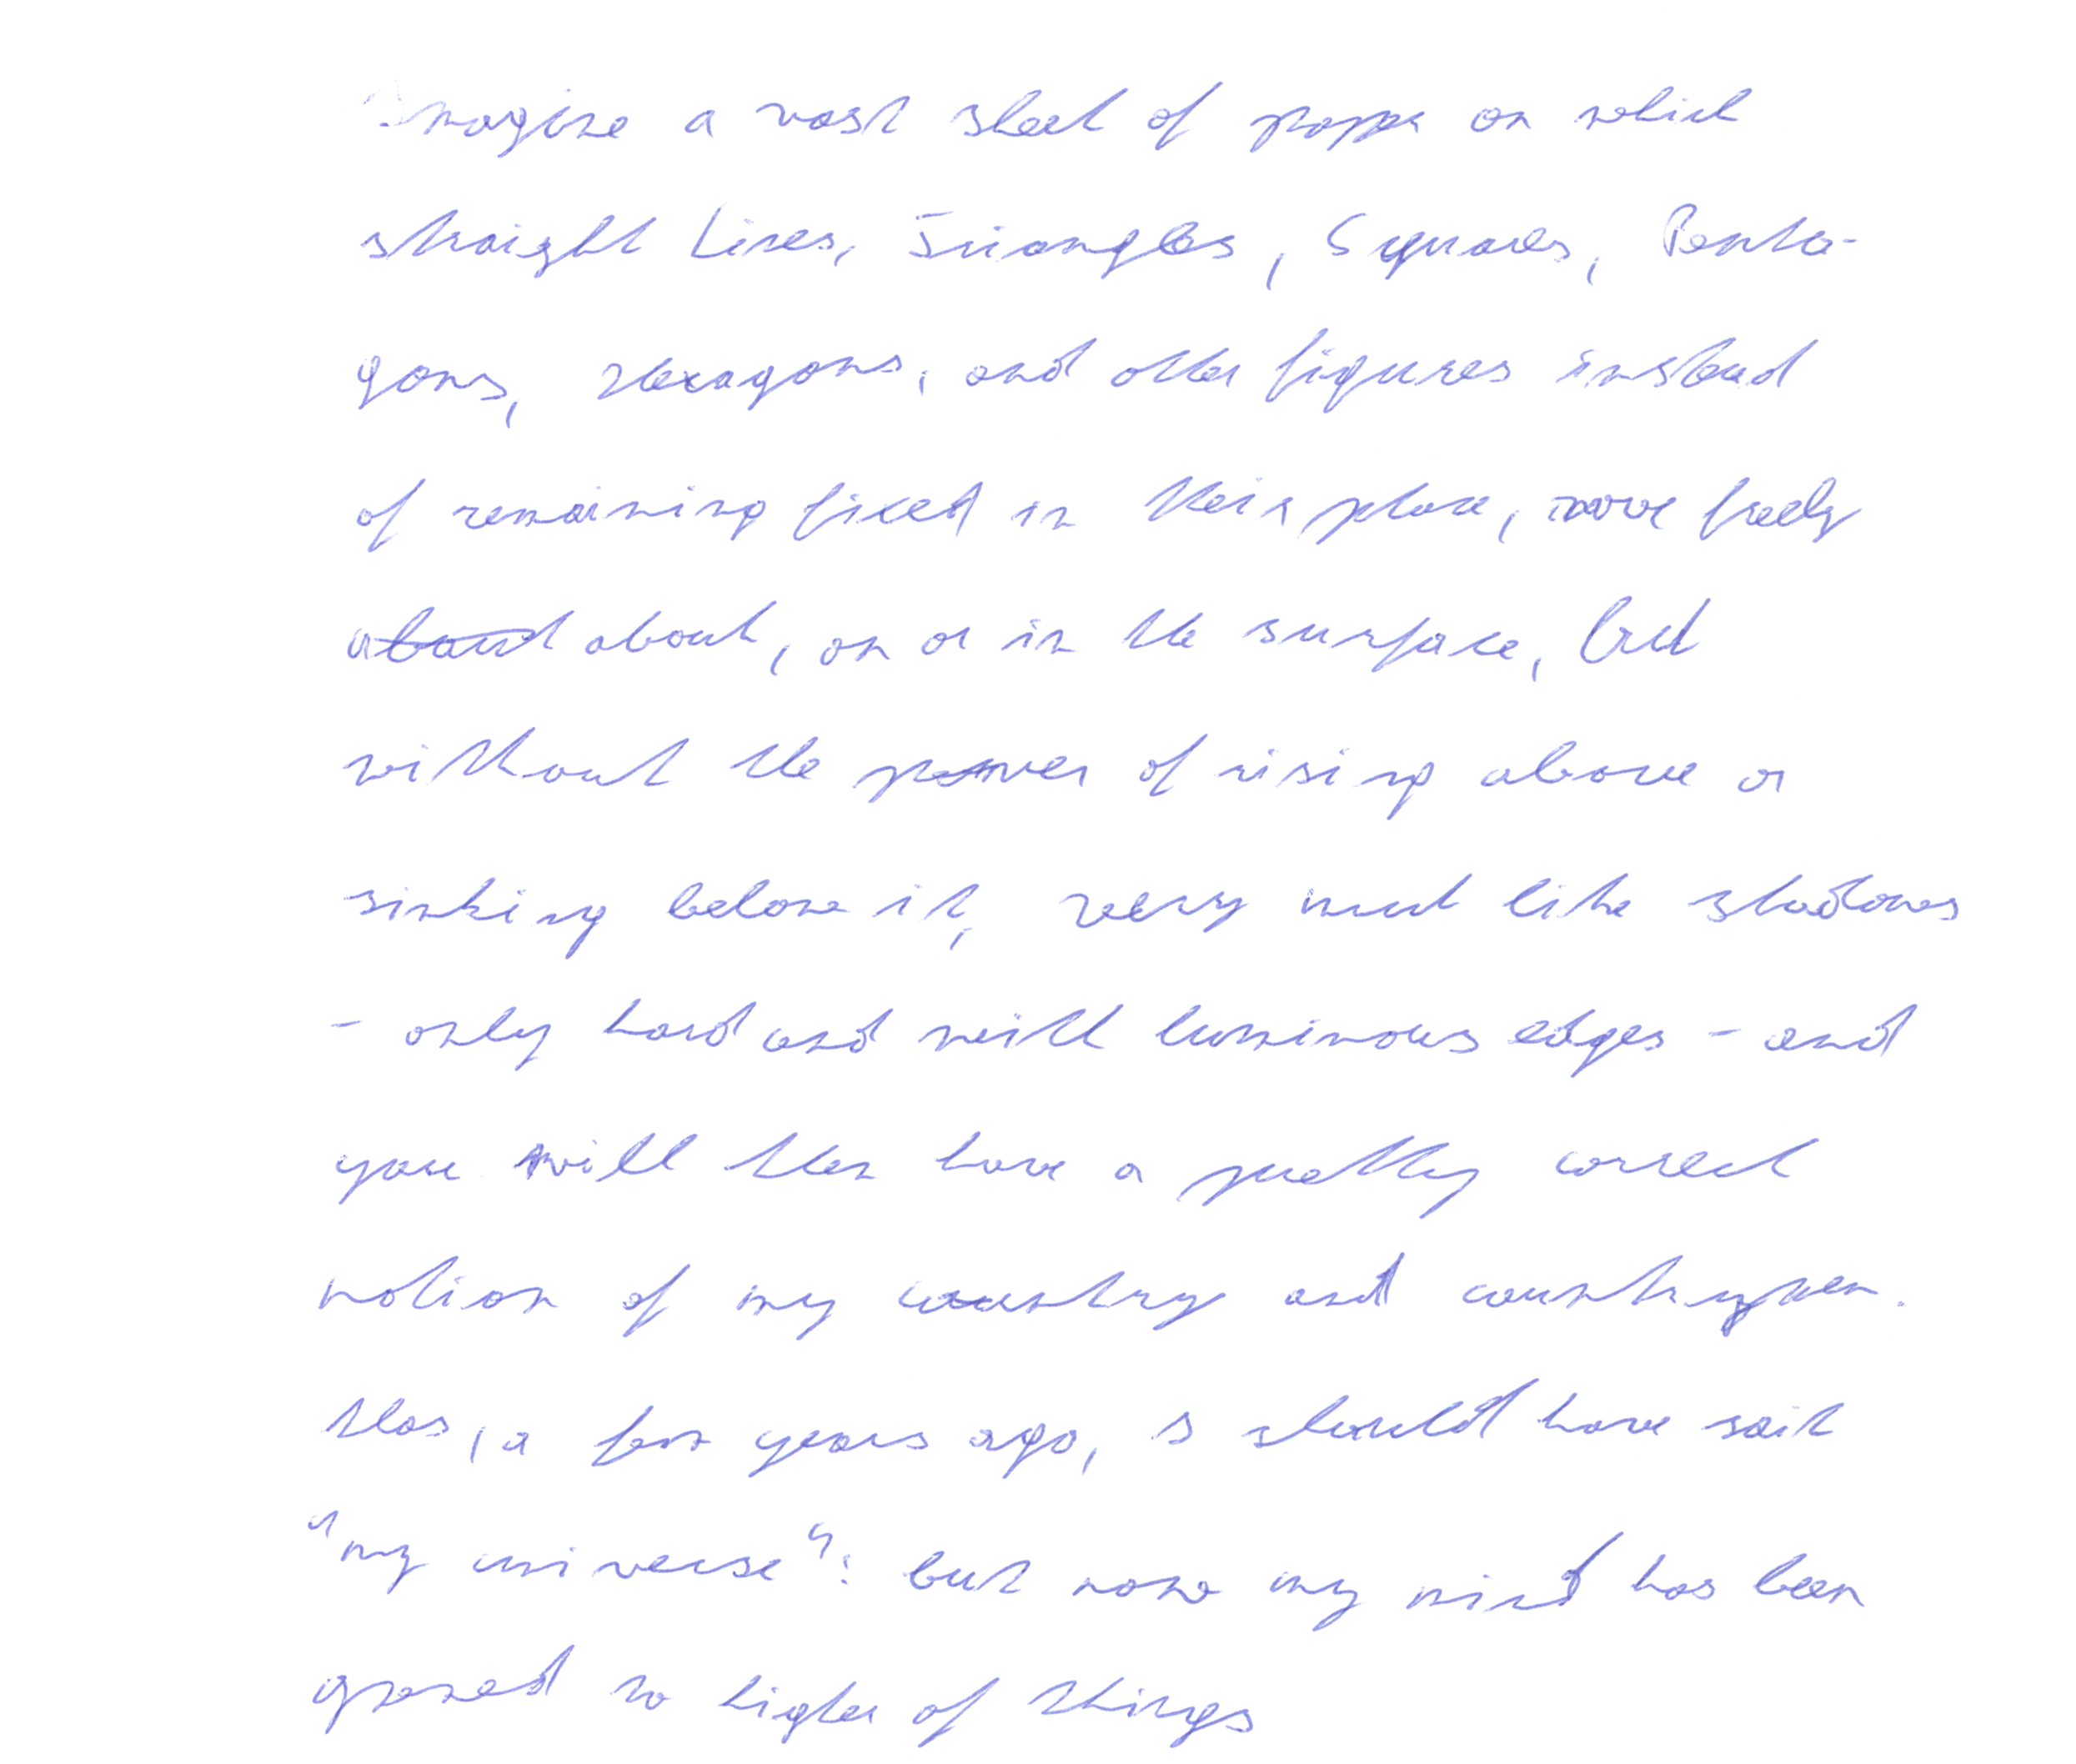 Imagine a vast sheet of paper on which
straight Lines, Triangles, Squares, Penta-
gons, Hexagons, and other figures instead
of remaining fixed in their place, move freely
about about, on or in the surface, but
without the power of rising above or
sinking below it, very much like shadows
- only hard and with luminous edges - and
you will then have a pretty correct
notion of my country and countrymen.
Alas, a few years ago, I should have said
"my universe": but now my mind has been
opened to higher of things